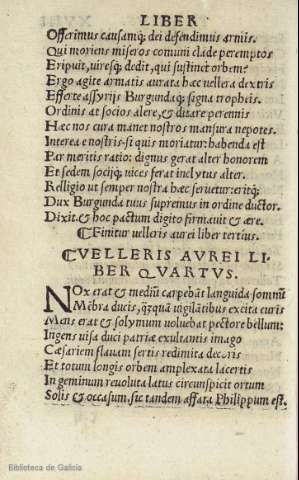 LIBER
Offerimus causamq; dei defendimus armis.
Qui moriens miseros comuni clade peremptos
Eripuit, uiresq; dedit, qui sustinet orbem?
Ergo agite armatis aurata hæc uellera dextris
Efferte assyrijs Burgundaq; signa tropheis.
Ordinis at socios alere, & ditare perennis
Hæc nos cura manet nostros mansura nepotes.
Interea e nostris si quis moriatur: habenda est
Par meritis ratio: dignus gerat alter honorem
Et sedem socijq; uices ferat inclytus alter.
Relligio ut semper nostra hæc seruetur: eritq;
Dux Burgunda tuus supremus in ordine ductor.
Dixit & hoc pactum digito firmauit & ære.
☾Finitur uelleris aurei liber tertius.
☾VELLERIS AVREI LI
BER QVARTVS.
NOx erat & mediũ carpebãt languida somnũ
Mẽbra ducis, qᷓꝗᷓ uigilãtibus excita curis
Mens erat & solymum uoluebat pectore bellum:
Ingens uisa duci patriæ exultantis imago
Cæsariem flauam sertis redimita decoris
Et totum longis orbem amplexata lacertis
In geminum reuoluta latus circunspicit ortum
Solis & occasum. sic tandem affata Philippum est.
Biblioteca de Galicia